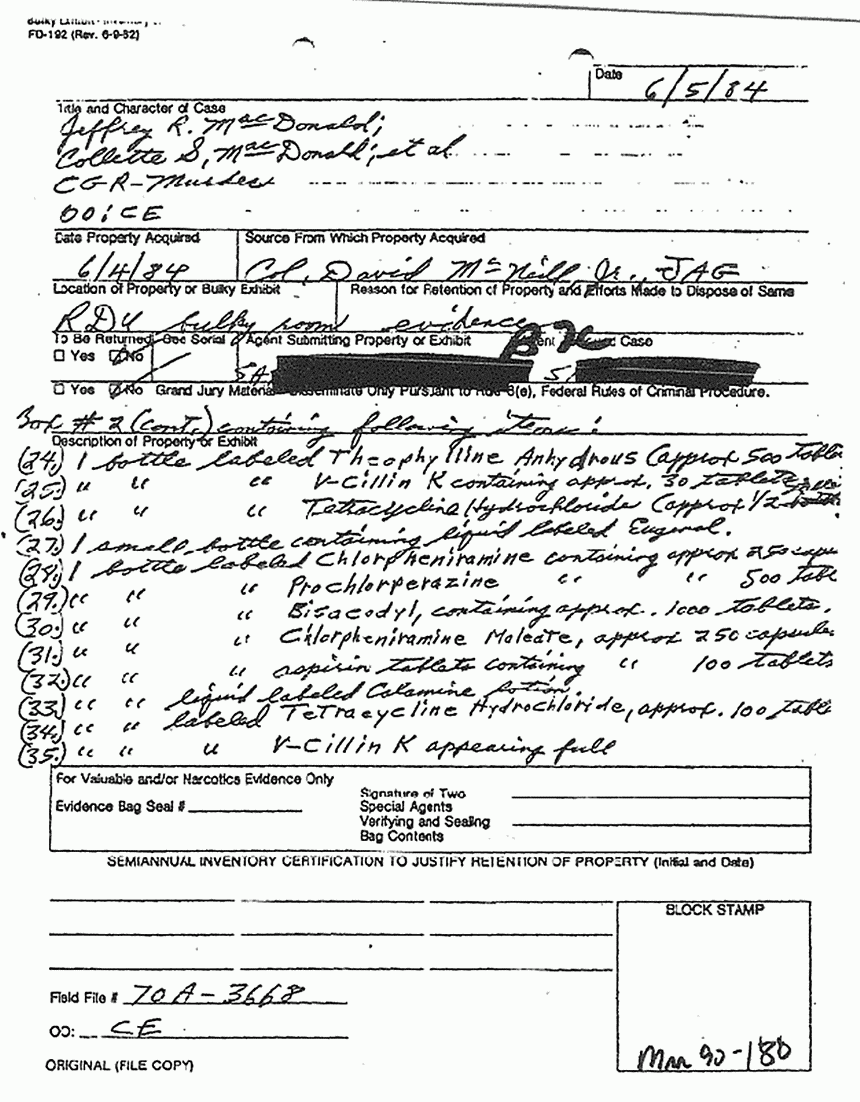 Bulky Exhibit - Inventory of
FD-192 (Rev. 6-9-82)
Date
6/5/84
Title and Character of Case
Jeffrey R. MacDonald;
Collette S, MacDonald; et al
CGR-Murders
OO: CE
Date Property Acquired
Source From Which Property Acquired
6/4/84
Col. David McNeill, Jr., JAG
Location of Property or Bulky Exhibit
Reason for Retention of Property and Efforts Made to Dispose of Same
RDU bulky room
evidence
To Be Returned
See Serial
Agent Submitting Property or Exhibit
Case
Yes No
SA
Yes No Grand Jury Material - Disseminate Only Pursuant to Rule 6(e), Federal Rules of Criminal Procedure.
Box # 2 (cont.) containing following items:
Description of Property or Exhibit
(24.) 1 bottle labeled Theophylline Anhydrous (approx 500 table
(25.) " " " V-Cillin K containing approx. 30 tablets
(26.) " " " Tetracycline Hydrochloride (approx 1/2
(27.) 1 small bottle containing liquid labeled Eugenol.
(28.) 1 bottle labeled Chlorpheniramine containing approx 250 capsu
(29.) " " " Prochlorperazine " " 500 tabl
(30.) " " " Bisacodyl, containing approx. 1000 tablets.
(31.) " " " Chlorpheniramine Maleate, approx 250 capsules
(32.) " " " aspirin tablets containing " 100 tablets
(33.) " " liquid labeled Calamine lotion.
(34.) " " labeled Tetracycline Hydrochloride, approx. 100 table
(35.) " " " V-Cillin K appearing full
For Valuable and/or Narcotics Evidence Only
Evidence Bag Seal #
Signature of Two
Special Agents
Verifying and Sealing
Bag Contents
SEMIANNUAL INVENTORY CERTIFICATION TO JUSTIFY RETENTION OF PROPERTY (Initial and Date)
BLOCK STAMP
Field File # 70A-3668
OO: CE
ORIGINAL (FILE COPY)
90-180